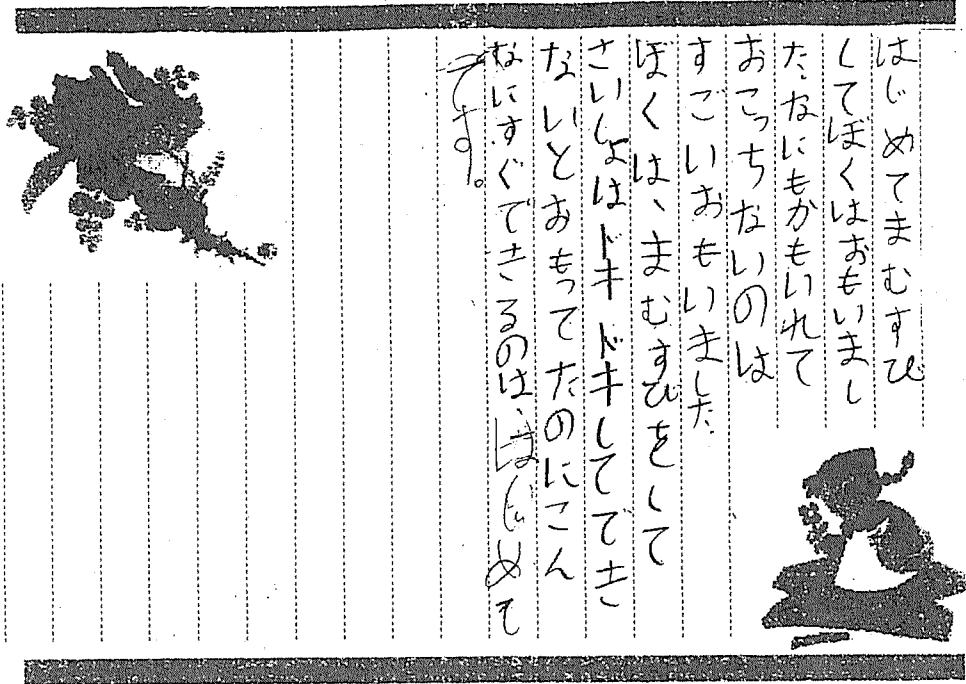 はじめてまむすび
してぼくはおもいまし
た。なにもかもいれて
おこっちないのは
すごいおもいました
ぼくは、まむすびをして
さいしょはドキドキしてでき
ないとおもってたのにこん
なにすぐできるのは、はじめて
です。